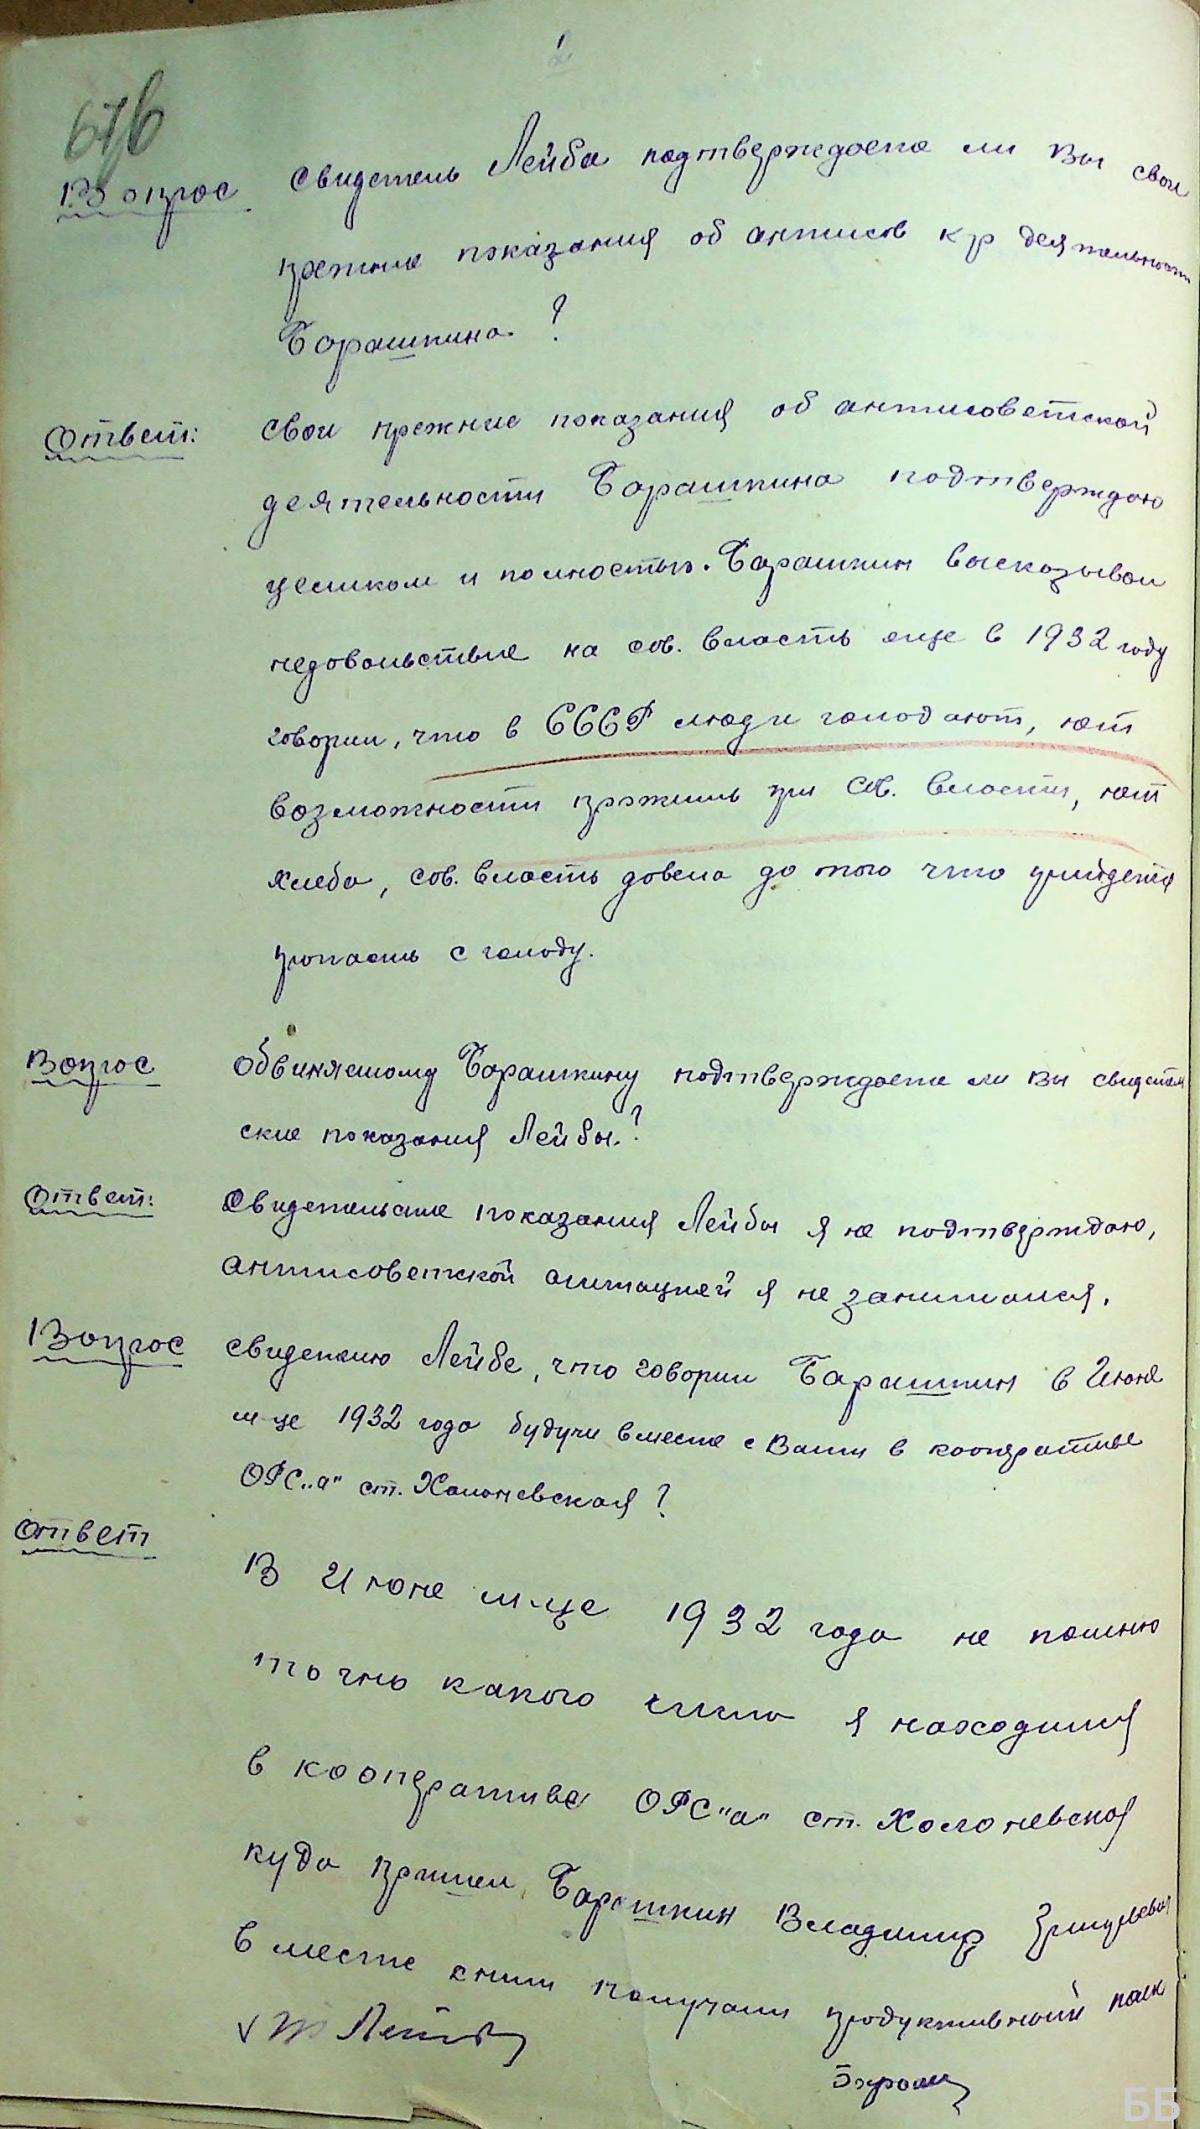 2
67б
Вопрос Свидетель Лейба подтверждаете ли Вы свои
прежние показания об антисов кр деятельности
Барашкина?
Ответ: Свои прежние показания об антисоветской
деятельности Барашкина подтверждаю
целиком и полностью. Барашкин высказывал
недовольствие на сов. власть еще в 1932 году
говорил, что в СССР люди голодают, нет
возможности прожить при Сов. власти, нет
хлеба, сов. власть довела до того что прийдется
пропасть с голоду.
Вопрос Обвиняемому Барашкину подтверждаете ли Вы свидетель
ские показания Лейбы?
Ответ: Свидетельские показания Лейбы я не подтверждаю,
антисоветской агитацией я не занимался.
Вопрос свидетелю Лейбе, что говорил Барашкин в Июне
м-це 1932 года будучи вместе с Вами в кооперативе
ОРС„а" ст. Холоневская?
Ответ
В Июне м-це 1932 года не помню
точно какого числа я находился
в кооперативе ОРС"а" ст. Холоневская
куда пришел Барашкин Владимир
вместе с ним получали продуктивный паек
Лейба
ББ